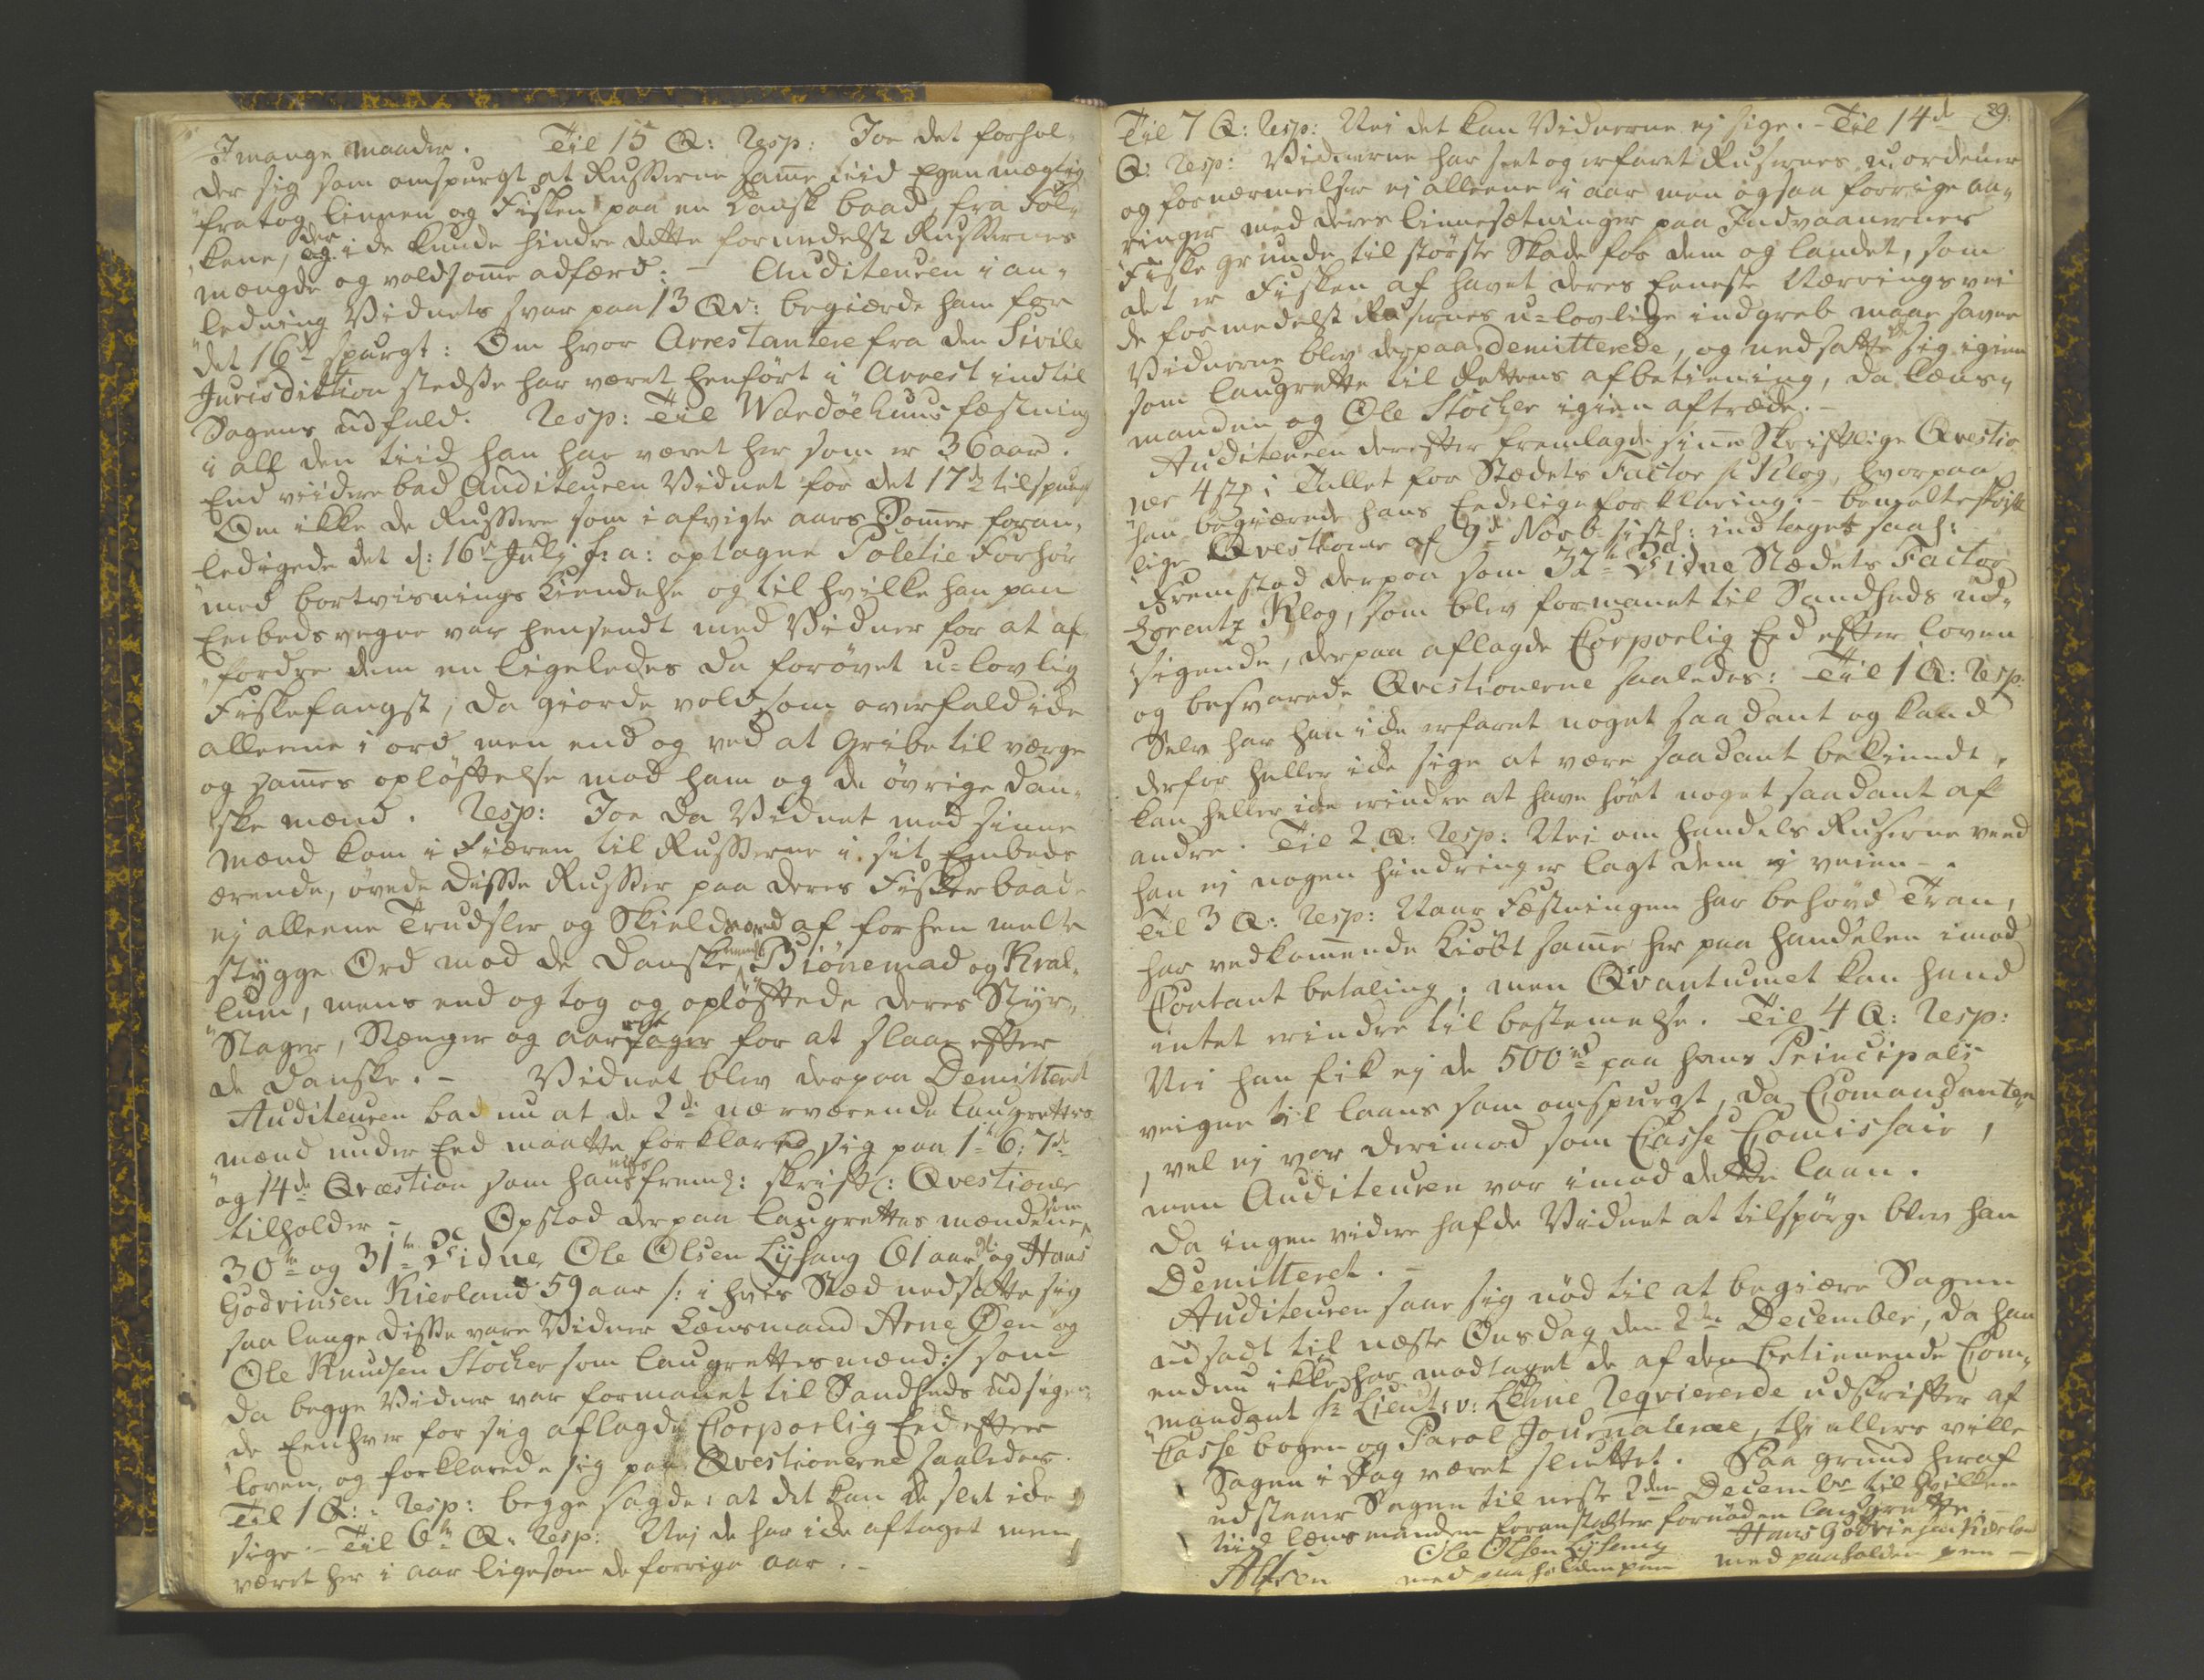 I mange maader. Til 15 Q: Resp: Joe det forhol-
der sig som omspurgt at Russerne samme tiid Egenmægtig
fratog linnen og Fisken paa en Dansk baad, fra Fol-
kene, der og ide kunde hindre dette formedelst Russernes
mængde og voldsomme adfærd: - Auditeuren i an-
ledning Vidnets svar paa 13 Qv: begiærde ham for
det 16de spurgt: Om hvor Arrestantere fra den Sivile
Jurisdiktion stedse har været henført i Arrest indtil
Sagens udfald. Resp: Til Wardøehuus fæstning
i all den tiid han har været her som er 36 aar.
End viidere bad Auditeuren Vidnet for det 17de tilspurgt
Om ikke de Russere som i afvigte aars Sommer foran-
ledigede det d: 16de July f: a: optagne Poletie Forhør
med bortvisnings Kiendelse og til hvilke han paa
Embedsvegne var hensendt med Vidner for at af-
fordre dem en ligeledes da forøvet u-lovlig
Fiskefangst, da giorde voldsom overfald ide
alleene i ord men end og ved at Gribe til værge
og sammes opløftelse mod ham og de øvrige Dan-
ske mænd. Resp: Joe da Vidnet med sinne
Mænd kom i Fiæren til Russerne i sit Embeds
ærende, øvede disse Russer paa deres Fisker baade
ej alleene Trudsler og Skieldsord af forhen melte
stygge Ord mod de Danske mænd Biønemad og Kral-
lum, mens end og tog og opløftede deres Styr-
Stager, Stænger og aar for at slaae efter
de Danske. - Vidnet blev derpaa Demitteret
Auditeuren bad nu at de 2de nærværende Laugrettes
mænd under Eed maatte forklare sig paa 1te 6: 7de
og 14de Qvæstion som hans freml: skriftl: Qvestioner
tilholder - Opstod derpaa Laugrettes mændene som
30te og 31te Vidne, Ole Olsen Lysang 61 aar og Hans
Godvinsen Kierland 59 aar /: i hvis Sted nedsatte sig
saa længe disse vare Vidner Lænsmand Arne Øen og
Ole Knudsen Stocker som Laugrettesmænd :/ som
da begge Vidner var formanet til Sandheds udsigen-
de Eenhver for sig aflagde Corporlig Eed efter
loven, og forklarede sig paa Qvestionerne saaledes.
Til 1 Q: Resp: begge sagde: at det kan de slet ide
sige. - Til 6te Q: Resp: Nej de har ide aftaget men
været her i aar ligesom de forrige aar. -
39.
Til 7 Q: Resp: Nei det kan Vidnerne ej sige. - Til 14de
Q: Resp: Vidnerne har seet og erfaret Russernes uordener
og fornærmelser ej alleene i aar men ogsaa forrige aa-
ringer med deres linnesætninger paa Indvaanernes
Fiske grunde til største Skade for dem og landet, som
det er Fisken af havet deres Eeneste Næringsvei
de formedelst Russernes u-lovlige indgreb maae savne
Vidnerne blev derpaa demitterede, og nedsatte de sig igien
som laugrette til Rettens afbetiening, da Læns-
manden og Ole Stocker igien aftræde. -
Auditeuren derefter fremlagde sinne Skriftlige Qvestio
ner 4 stk i Tallet for Stædets Factor Sr Klog, hvorpaa
han begiærede hans Eedelige forklaring. - bemelte skrift
lige Qvestioner af 9de Novb: sistl: indtages saal:
Fremstod derpaa som 32te Vidne Stædets Factor
Lorentz Klog, som blev formanet til Sandheds ud-
sigende, derpaa aflagde Corporlig Eed efter loven
og besvarede Qvestionerne saaledes: Til 1 Q: Resp:
Selv har han ide erfaret noget saadant og kand
derfor heller ide sige at være saadant bekiendt,
kan heller ide erindre at have hørt noget saadant af
andre. Til 2 Q: Resp: Nei om handels Russerne veed
han ej nogen hindringer lagt dem i veien - .
Til 3 Q: Resp: Naar Fæstningen har behøvd Tran,
har vedkommende Kiøbt samme her paa handelen imod
Contant betaling, men Qvantumet kan hand
intet erindre til bestemmelse. Til 4 Q: Resp:
Nei han fik ej de 500 rd paa hans Principals
veigne til laans som omspurgt, da Comandanten
vel ej var derimod som Casse Comissair,
men Auditeuren var imod dette laan.
Da ingen videre hafde Vidnet at tilspørge blev han
Demitteret. -
Auditeuren saae sig nød til at begiære Sagen
udsadt til næste Onsdag den 2den December, da han
endnu ikke har modtaget de af den betienende Com-
mandant Sr Lieut: v: Lehne Reqvirerede udskrifter af
Casse bogen og Parol Journalerne, thi ellers ville
Sagen i Dag været sluttet. Paa grund heraf
udstaaer Sagen til neste 2den December til hvilken
tiid Lensmanden foranstalter fornøden laugrette. -
Ole Olsen Lysang Hans Godvinsen Kierland
med paaholden pen med paaholden pen -